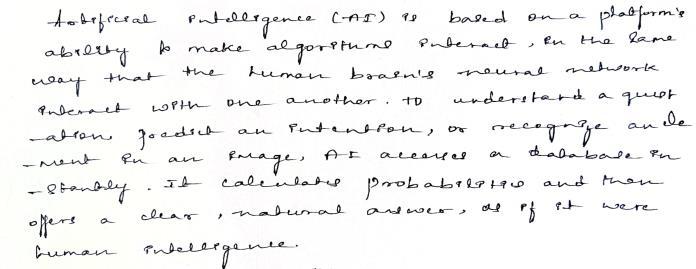 Artificial intelligence (AI) is based on a platform's
ability to make algorithms interact, in the same
way that the human brain's neural network
interact with one another. to understand a quest
-ation, predict an intention, or recognize an ele
-ment in an image, AI accesses a database in
-stantly. It calculates probabilities and then
offers a clear, natural answer, as if it were
human intelligence.